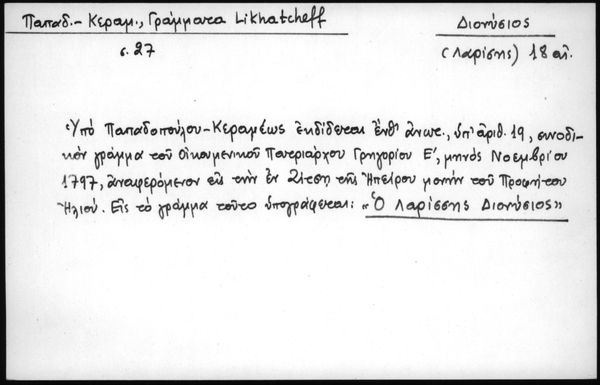 Παπαδ.- Κεραμ., Γράμματα Likhatcheff
Διονύσιος
σ. 27
(Λαρίσης) 18 αἰ.
Ὑπό Παπαδοπούλου-Κεραμέως ἐκδίδεται ἔνθ' ἀνωτ., ὑπ' ἀριθ. 19, συνοδι-
κόν γράμμα τοῦ Οἰκουμενικοῦ Πατριάρχου Γρηγορίου Ε', μηνός Νοεμβρίου
1797, ἀναφερόμενον εἰς τήν ἐν Ζίτσῃ τῆς Ἠπείρου μονήν τοῦ Προφήτου
Ἠλιού. Εἰς τό γράμμα τοῦτο ὑπογράφεται: «Ὁ Λαρίσσης Διονύσιος»